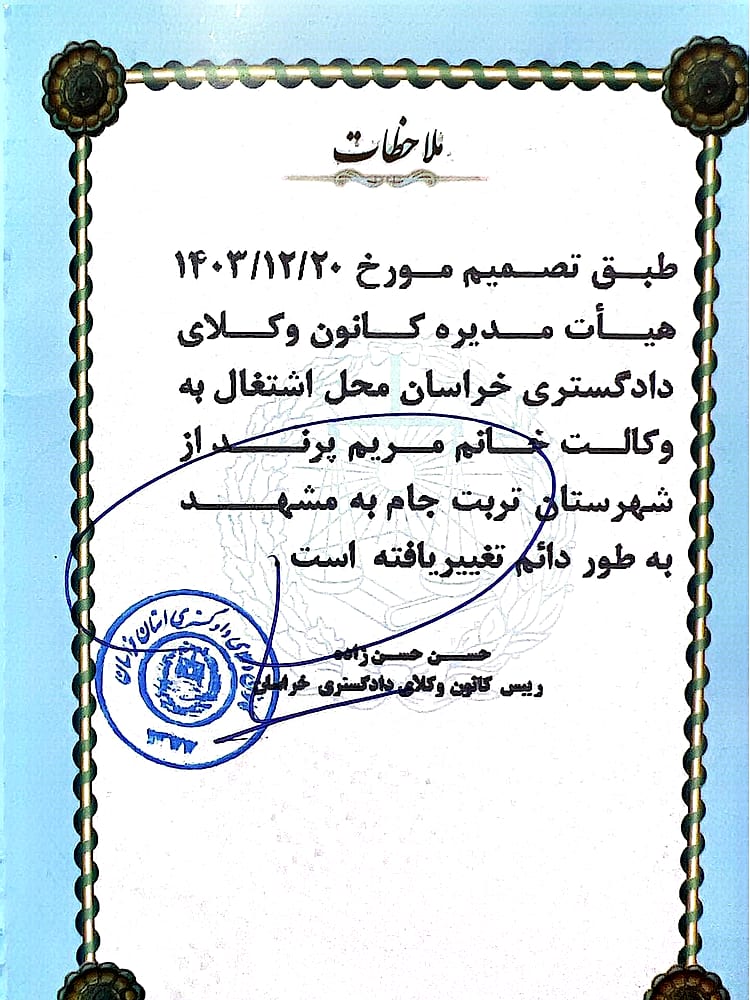 ملاحظات
طبق تصمیم مورخ ۱۴۰۳/۱۲/۲۰
هیأت مدیره کانون وکلای
دادگستری خراسان محل اشتغال به
وکالت خانم مریم پرند از
شهرستان تربت جام به مشهد
به طور دائم تغییریافته است .
حسن حسن زاده
رییس کانون وکلای دادگستری خراسان
کانون وکلای دادگستری استان خراسان